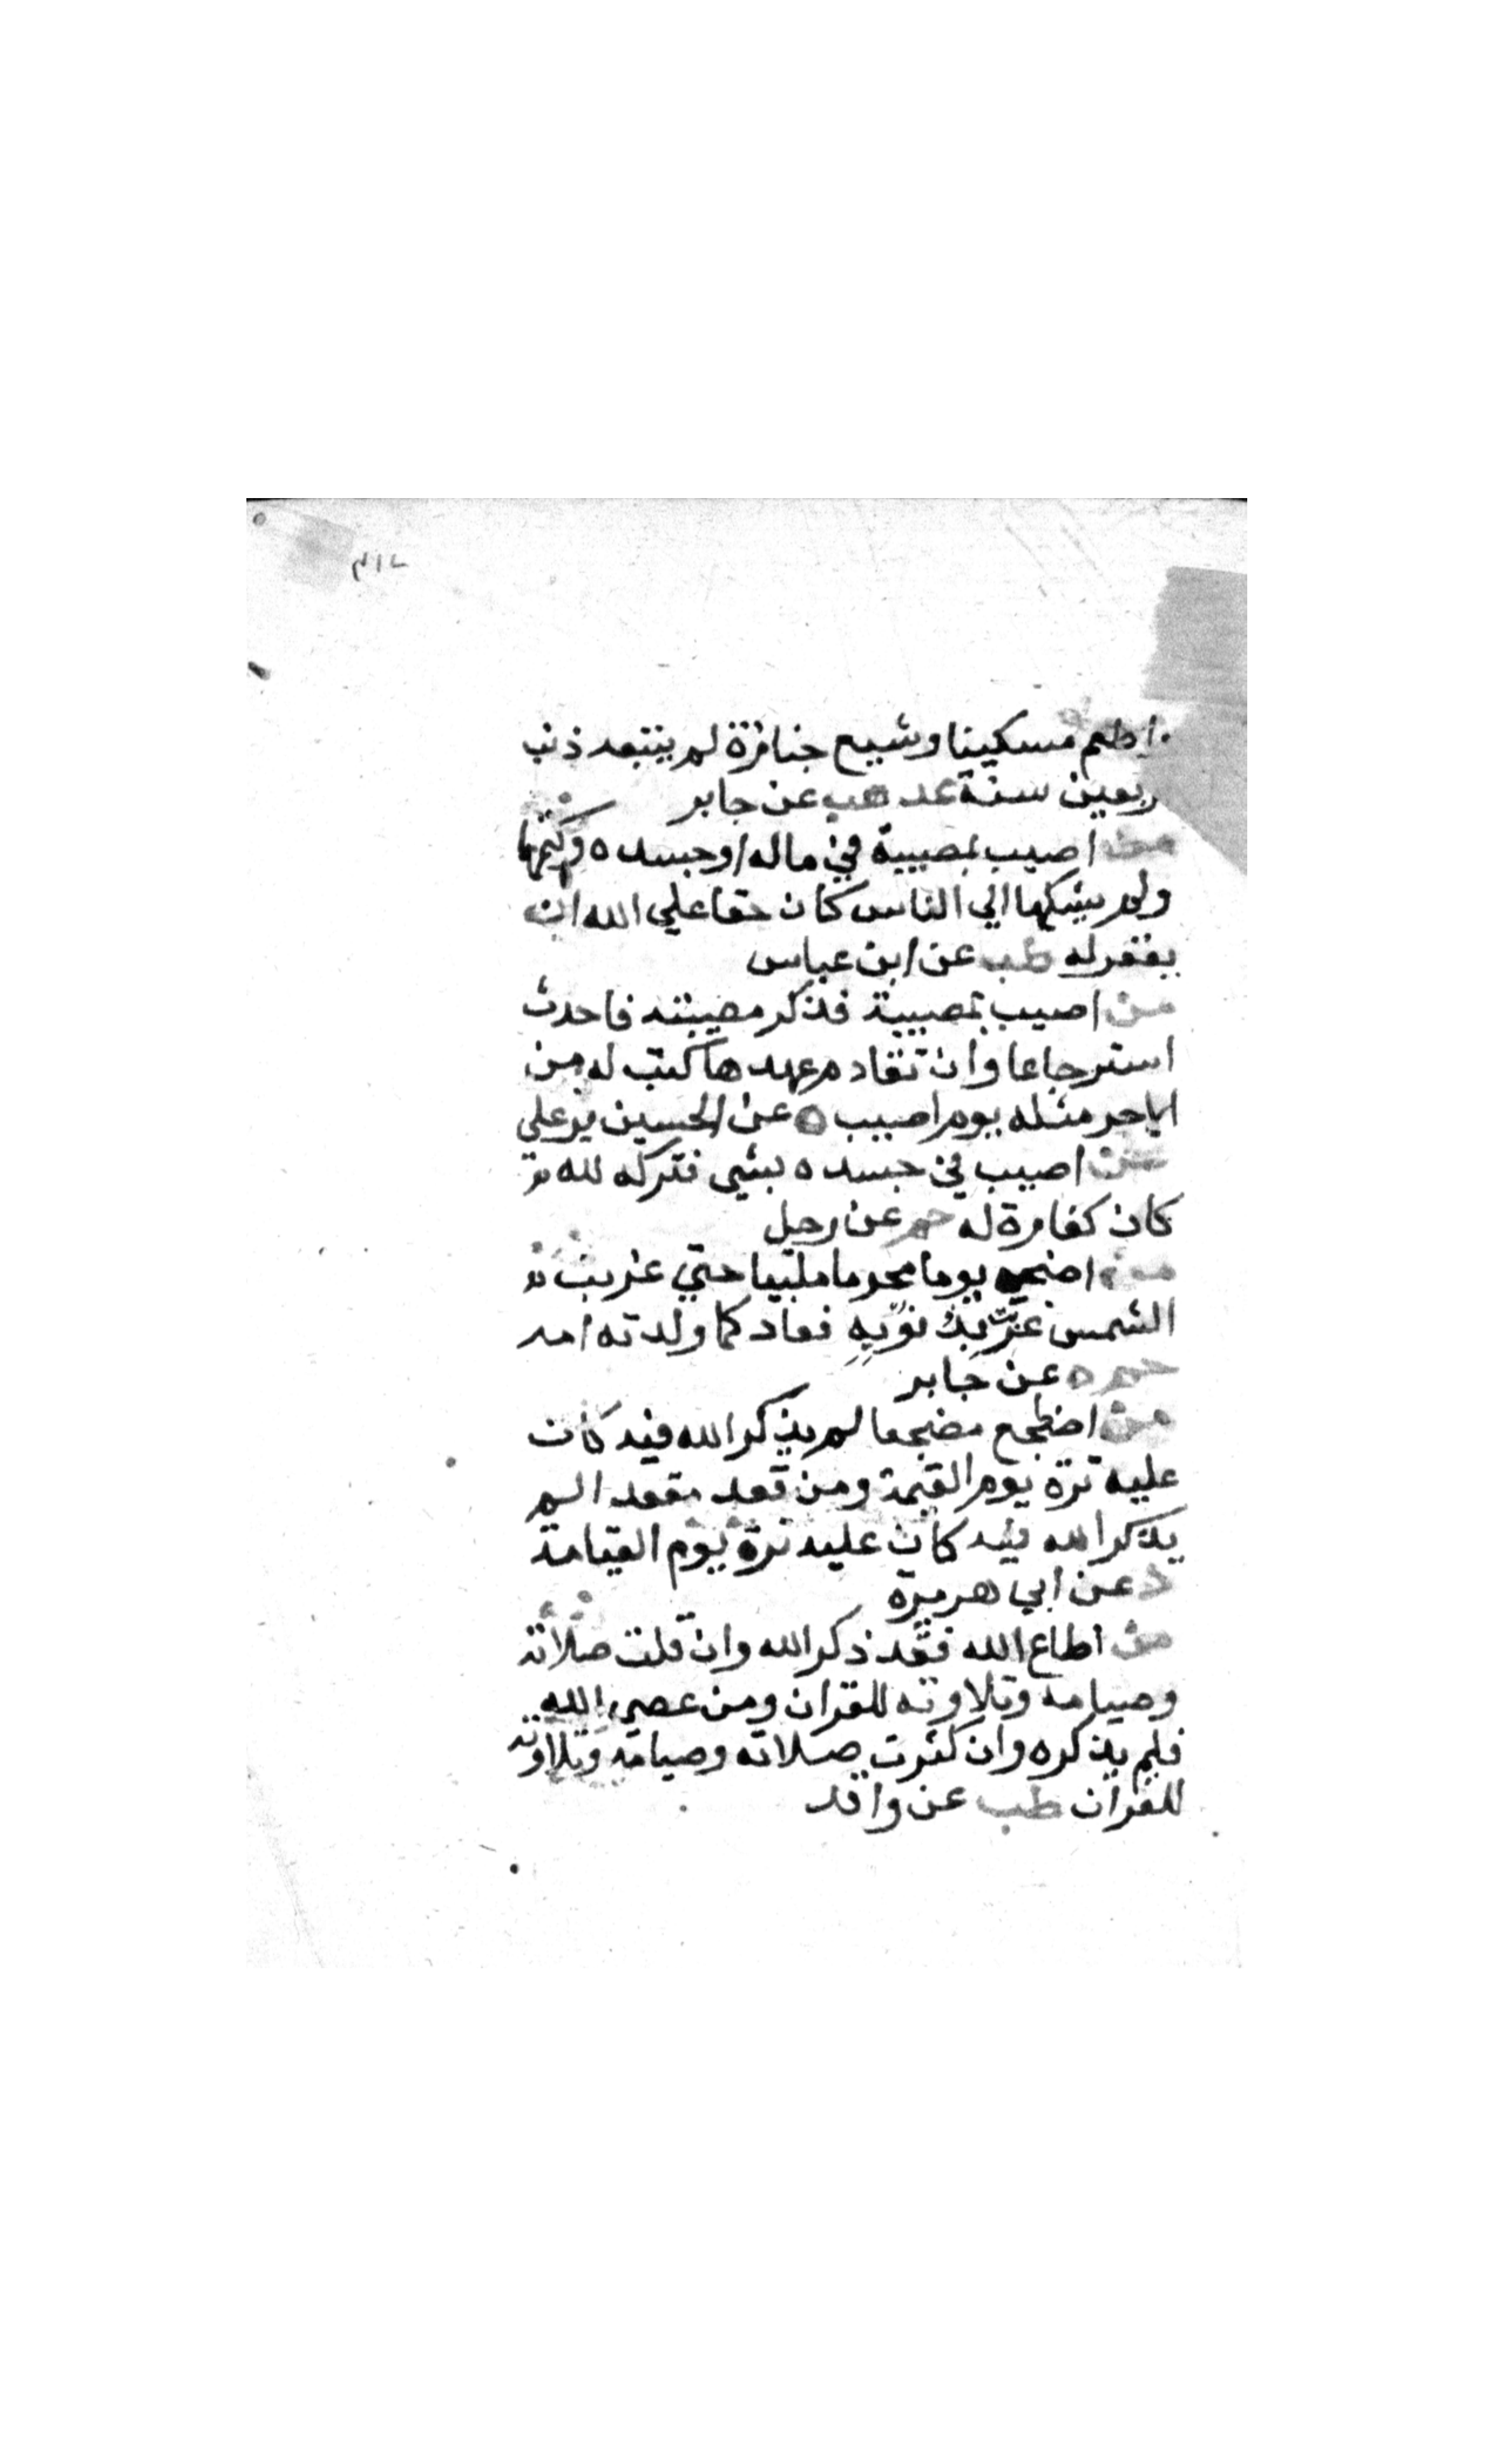 اطعم مسكينا وشيع جنازة لم يتبعه ذنب
ربعين سنة عد هب عن جابر
من اصيب بمصيبة في ماله او جسده وكتمها
ولم يشكها الي الناس كان حقا علي الله ان
يغفر له طب عن ابن عباس
من اصيب بمصيبة فذكر مصيبته فاحدث
استرجاعا وان تقادم عهدها كتب له من
الاجر مثله يوم اصيب ه عن الحسين بن علي
من اصيب في جسده بشي فتركه لله
كان كفارة له حم عن رجل
من اضحي يوما محرما ملبيا حتي غربت
الشمس غربت بذنوبه فعاد كما ولدته امه
حم ه عن جابر
من اضطجع مضجعا لم يذكر الله فيه كان
عليه ترة يوم القيمة ومن قعد مقعدا لم
يذكر الله فيه كان عليه ترة يوم القيامة
د عن ابي هريرة
من اطاع الله فقد ذكر الله وان قلت صلاته
وصيامه وتلاوته للقران ومن عصي الله
فلم يذكره وان كثرت صلاته وصيامه وتلاوته
للقران طب عن واقد